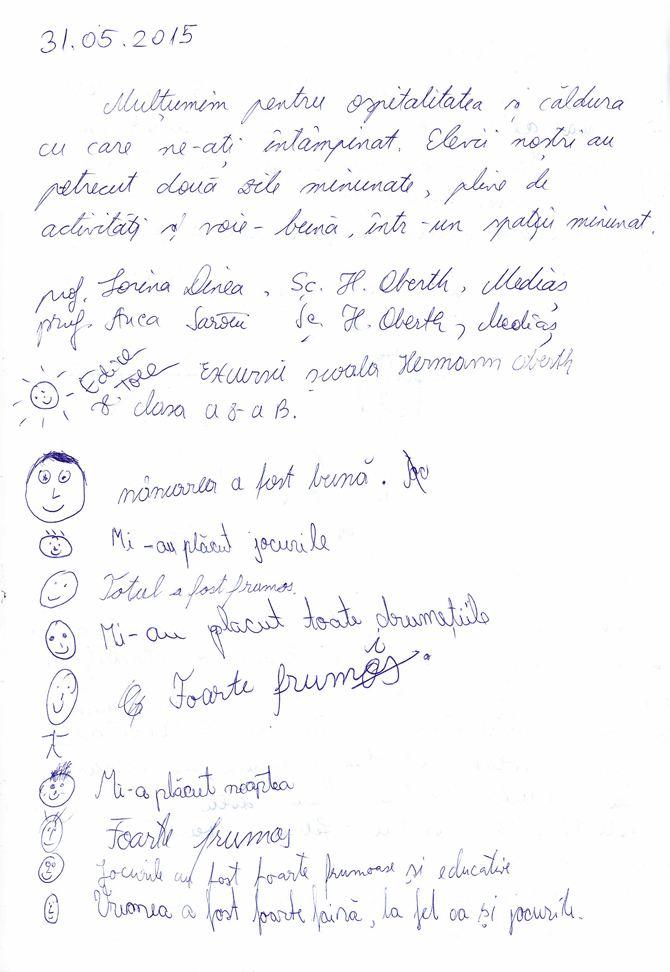 31.05.2015
Mulțumim pentru ospitalitatea și căldura
cu care ne-ați întâmpinat. Elevii noștri au
petrecut două zile minunate, pline de
activități și voie-bună, într-un spațiu minunat.
prof. Lorina Dinea, Șc. H. Oberth, Mediaș
prof. Anca Șc. H. Oberth, Mediaș
Excursii școala Hermann Oberth
clasa a 8-a B.
mâncarea a fost bună.
Mi-au plăcut jocurile
Totul a fost frumos.
Mi-au placut toate drumețiile
Foarte frumos.
Mi-a plăcut noaptea
Foarte frumos
Jocurile au fost foarte frumoase și educative
Vremea a fost foarte faină, la fel ca și jocurile.